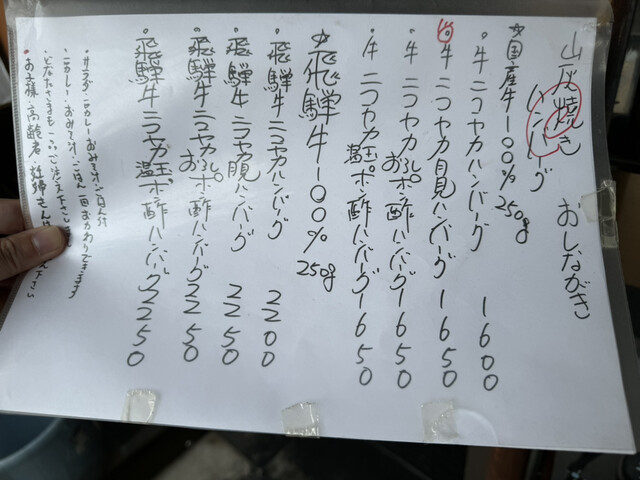 炭焼き ハンバーグ おしながき
☆国産牛100% 250g
・牛ニコヤカハンバーグ 1600
・牛ニコヤカ月見ハンバーグ 1650
・牛ニコヤカおろしポン酢ハンバーグ 1650
・牛ニコヤカ温玉ポン酢ハンバーグ 1650
☆飛騨牛100% 250g
・飛騨牛ニコヤカハンバーグ 2200
・飛騨牛ニコヤカ月見ハンバーグ 2250
・飛騨牛ニコヤカおろしポン酢ハンバーグ 2250
・飛騨牛ニコヤカ温玉ポン酢ハンバーグ 2250
・サラダ・カレー・おみそ汁・ごはん付
・カレー・おみそ汁・ごはん一回おかわりできます
・どなたさまも一つご注文下さい
・お子様 高齢者 妊婦さん 下さい